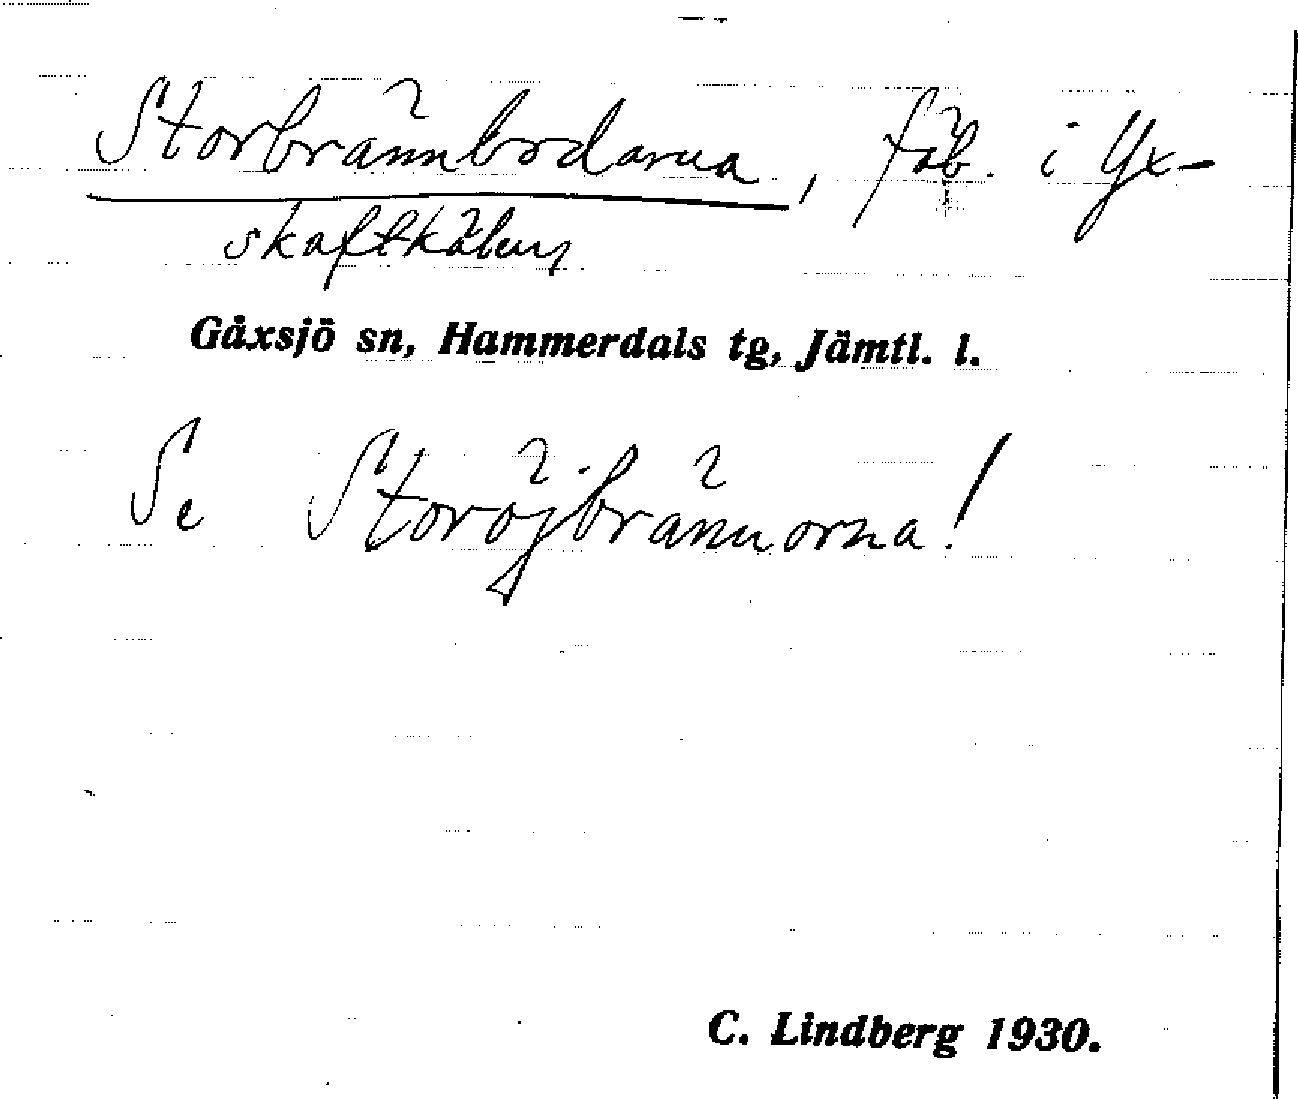 Storbrännbodarna, fäb. i Yx-
skaftkälen
Gåxsjö sn, Hammerdals tg, Jämtl. l.
Se Storöjbrännorna!
C. Lindberg 1930.